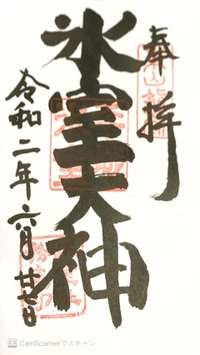 奉拝
氷室大神
令和二年六月廿七日
CamScannerでスキャン